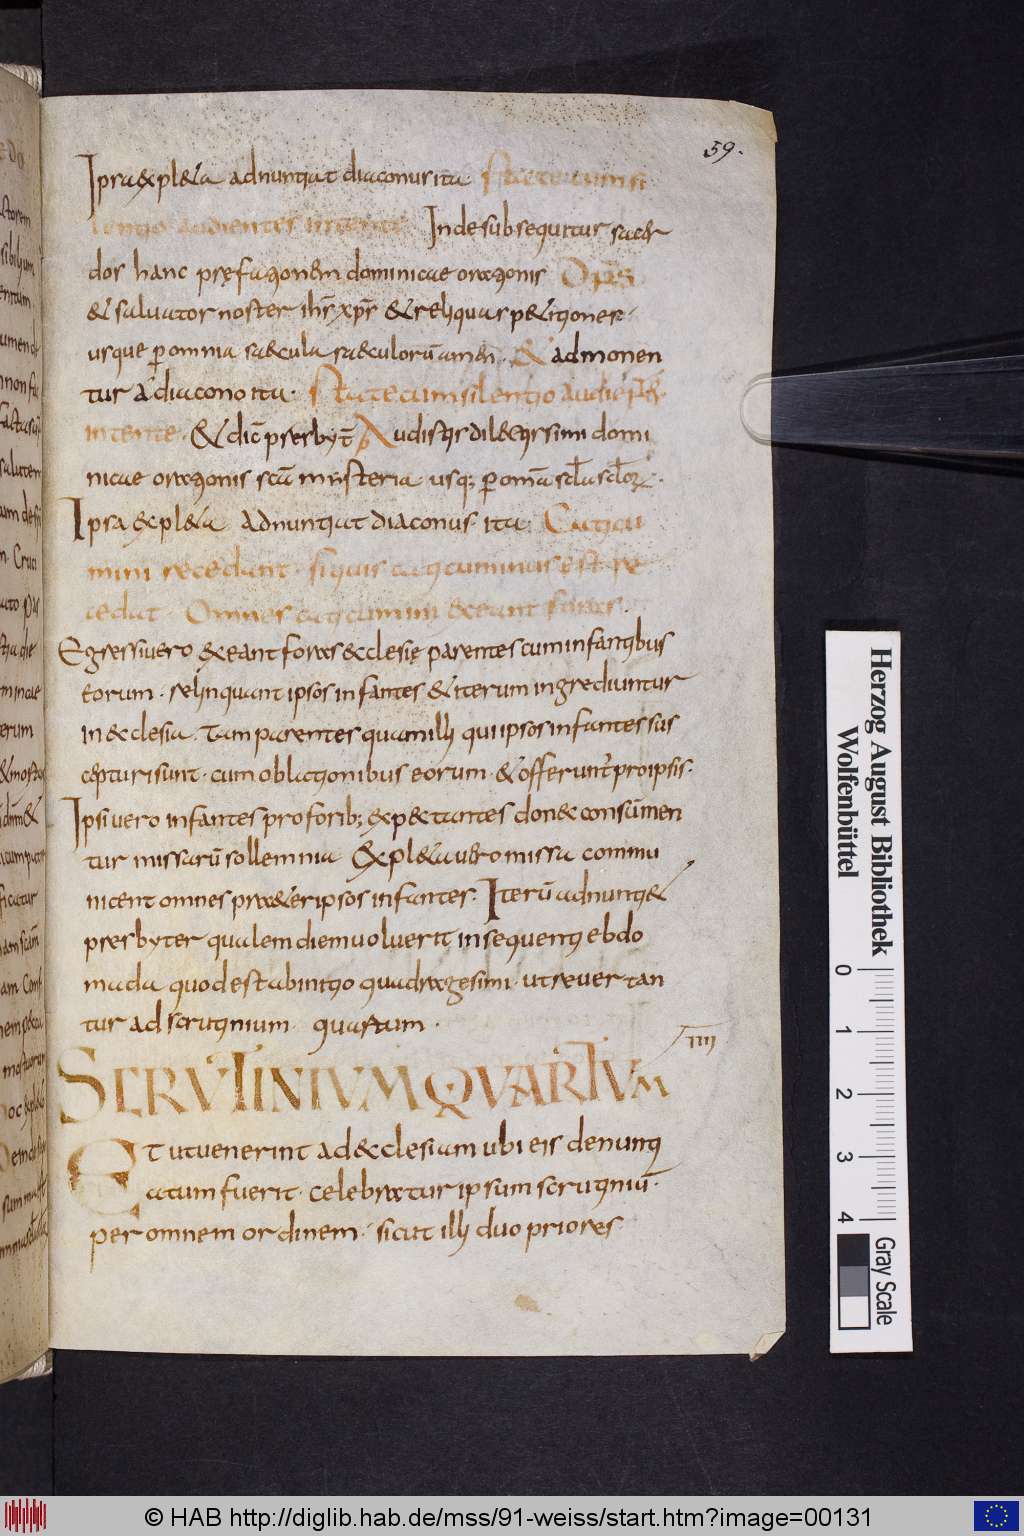 59.
Ipra expl&a adnuntiat diaconus ita State cum si
lentio audientes intente Inde subsequitur sacer
dos hanc pręfationem dominicae orationis Dns̄
& saluator noster ihs̄ xp̄s & reliquas p&itiones.
usque p omnia saecula saeculorū amen. & admonen
tur a diacono ita. State cum silentio audien̄t
intente. & dic̄ presbyt̄ Audistis dilectissimi domi
nicae orationis sc̄a mysteria usq; p om̄a scl̄a scl̄oꝝ.
Ipsa expl&a adnuntiat diaconus ita. Caticu
mini recedant. si quis caticuminus est re
cedat. Omnes caticumini exeant foras.
Egressi uero exeant foras ecclesię parentes cum infantibus
eorum. relinquant ipsos infantes & iterum ingrediuntur
in ecclesia. Tam parentes quam illi qui ipsos infantes sus
cepturi sunt. cum oblationibus eorum. & offerunt̄ pro ipsis.
Ipsi uero infantes pro forib; expectantes donec consūmen
tur missarū sollemnia Expl&a uero missa commu
nicent omnes praeter ipsos infantes. Iterū adnunti&
presbyter qualem diem uoluerit in sequenti ebdo
mada quod est ab initio quadragesimi. ut reuertan
tur ad scrutinium quartum.
IIII
SCRUTINIUM QUARTUM
Et ut uenerint ad ecclesiam ubi eis denunti
atum fuerit. celebratur ipsum scrutiniū.
per omnem ordinem. sicut illi duo priores
torem
Herzog August Bibliothek
Wolfenbüttel
0 1 2 3 4
Gray Scale
© HAB http://diglib.hab.de/mss/91-weiss/start.htm?image=00131